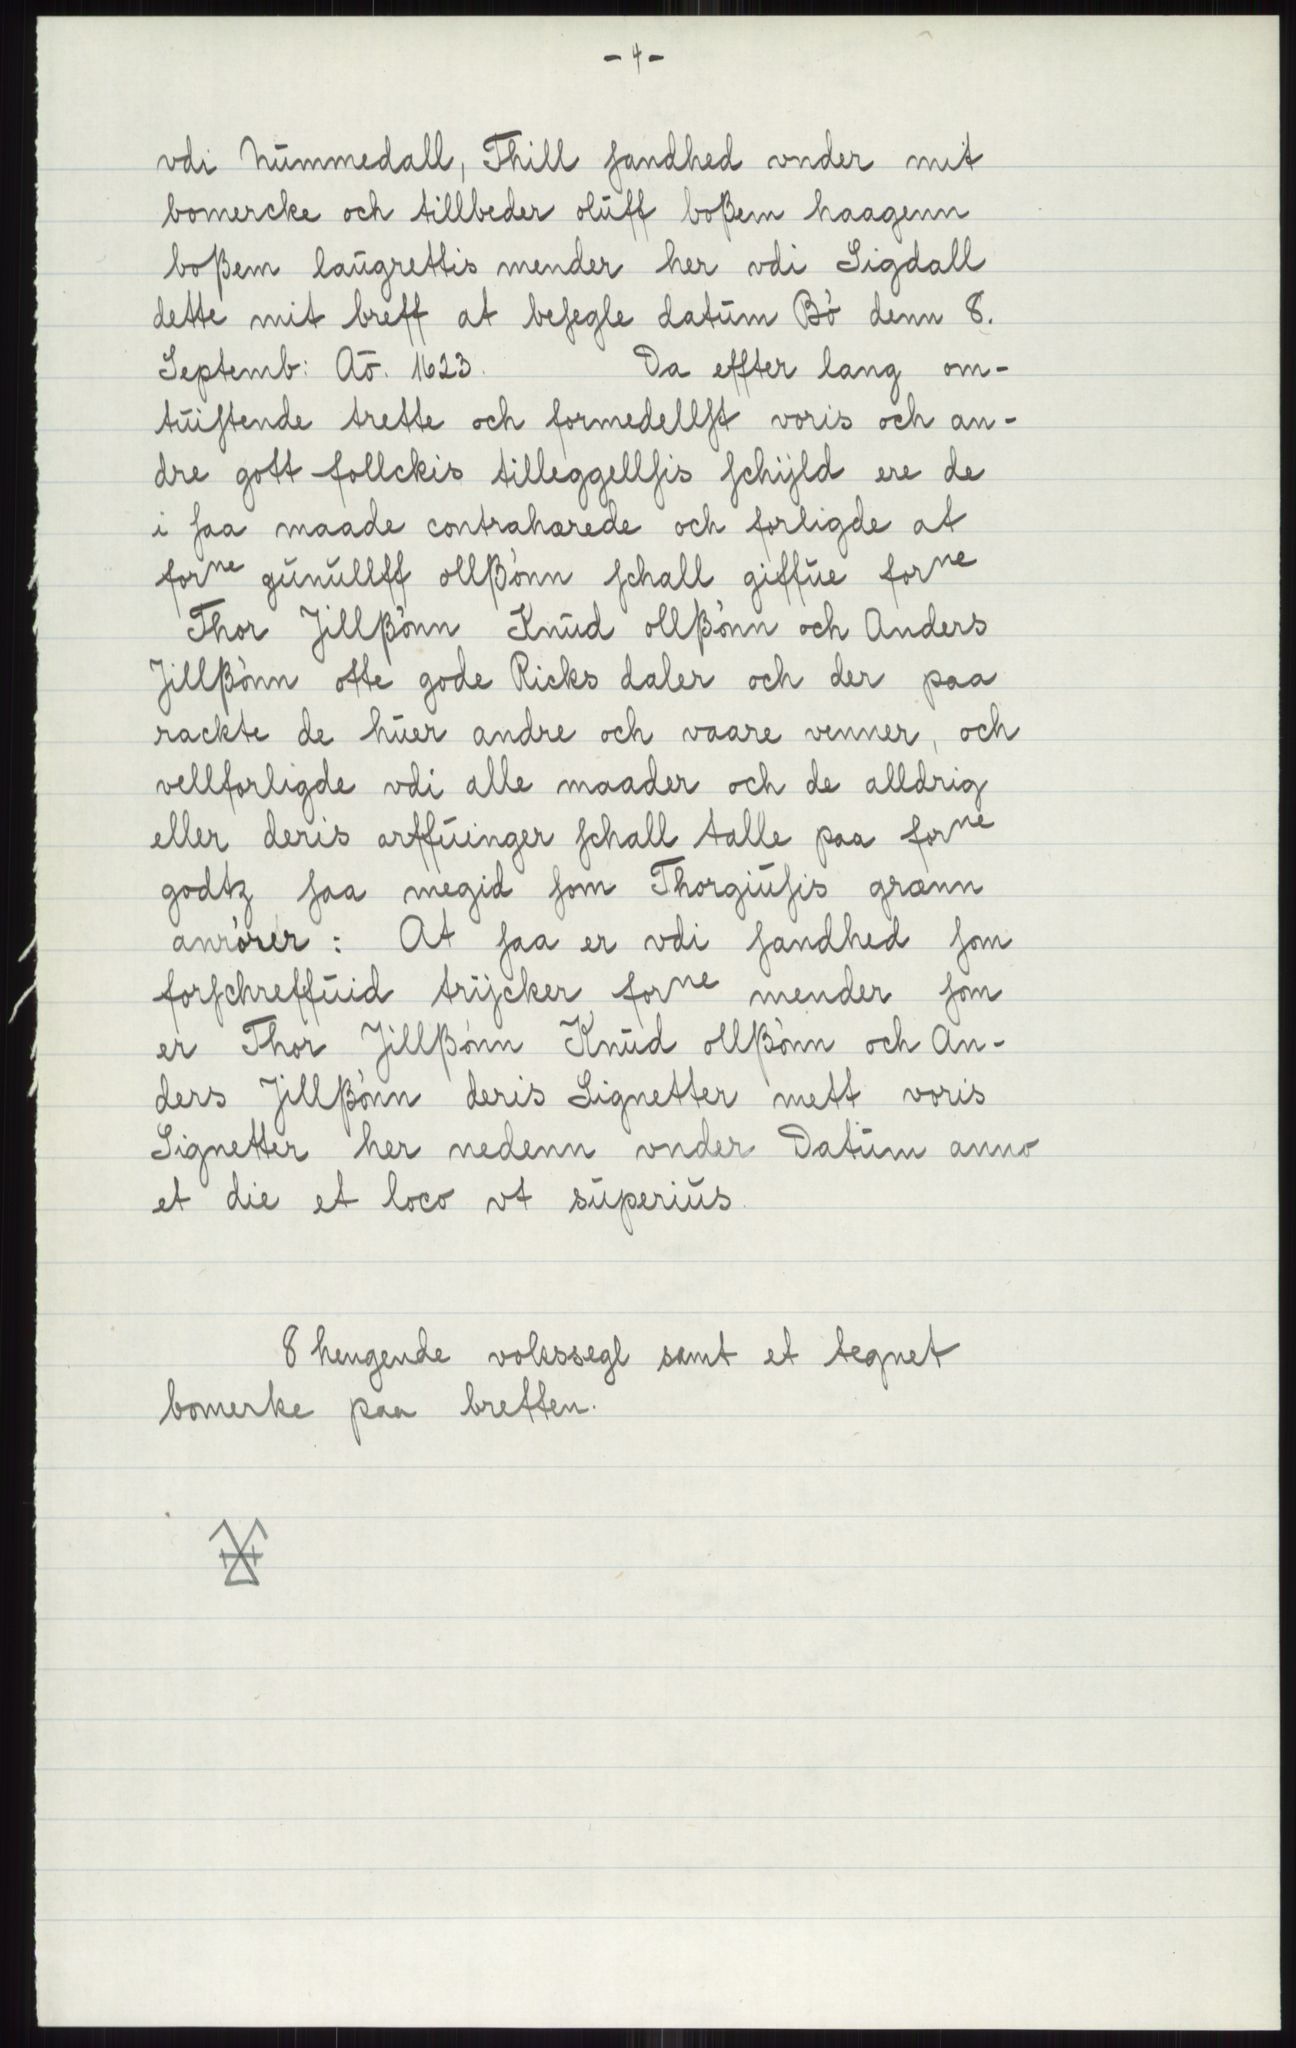 - 4 -
vdi Nūmmedall, Thill ſandhed vnder mit
bomercke och tillbeder olūff boßem haagenn
boßem laūgrettis mender her vdi Sigdall
dette mit breff at beſegle datūm Bò denn 8.
Septemb: Aō. 1623. Da effter lang om-
tūiſtende trette och formedellſt voris och an-
dre gott follckis tilleggellſis ſchÿld ere de
i ſaa maade contraherede och forligde at
forne gūnūllff ollßònn ſchall giffūe forne
Thor Jillßònn Knūd ollßònn och Anders
Jillßònn otte gode Ricks daler och der paa
rackte de hūer andre och vaare venner, och
vellforligde vdi alle maader och de alldrig
eller deris arffūinger ſchall talle paa forne
godtz ſaa megid ſom Thorgiūſis grænn
anròrer: At ſaa er vdi ſandhed ſom
forſchreffūid trÿcker forne mender ſom
er Thor Jillßònn Knūd ollßònn och An-
ders Jillßònn deris Signetter mett voris
Signetter her nedenn vnder Datūm anno
et die et loco vt sūperiūs.
8 hengende vokssegl samt et tegnet
bomerke paa bretten.